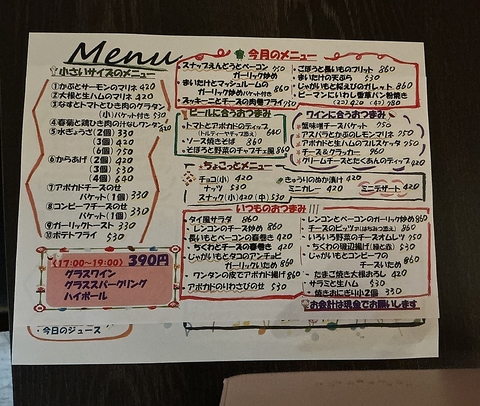 Menu
小さいサイズのメニュー
①かぶとサーモンのマリネ 420
②大根と生ハムのマリネ 420
③なすとトマトとひき肉のグラタン
(小)バケット付き 530
④春菊と鶏ひき肉の汁なしワンタン 420
⑤水ぎょうざ(2個) 330
(3個) 420
(4個)
(6個) 750
⑥からあげ(2個) 330
(3個) 420
(4個) 530
⑦アボカドチーズのせ
バケット(1個) 330
⑧コンビーフチーズのせ
バケット(1個) 330
⑨ガーリックトースト 330
⑩ポテトフライ 530
《17:00~19:00》 390円
グラスワイン
グラススパークリング
ハイボール
・今日のジュース
今月のメニュー
・スナップえんどうとベーコン
ガーリック炒め 750
・まいたけとマッシュルームの
ガーリック炒め バケット付き 860
・スッキーニとチースの肉巻フライ 950
・ごぼうと長いものフリット 860
・まいたけの天ぷら 530
・じゃがいもと桜えびのガレット 860
・ピーマンにいわし香草パン粉焼き
(2コ) 420 (4コ) 780
ビールに合うおつまみ
・トマトとアボカドのディップ
(トルティーヤ添え) 860
・ソース焼きそば 860
・そぼろと野菜のチャプチェ風 860
ワインに合うおつまみ
・蟹味噌チーズバケット 750
・アスパラとかぶのレモンマリネ 750
・アボカドと生ハムのブルスケッタ 750
・チーズ&クラッカー 960
・クリームチーズとたくあんのディップ 420
ちょこっとメニュー
チョコ(小) 420
ナッツ 530
スナック(小) 420 (中) 530
きゅうりのぬか漬け 420
ミニカレー 420
ミニデザート 420
いつものおつまみ!!!
・タイ風サラダ 860
・レンコンのチーズ炒め 860
・長いもとベーコンの春巻き 420
・ちくわとチーズの春巻き 420
・じゃがいもとタコのアンチョビ
ガーリックいため 860
・ワンタンの皮でアボカド揚げ 860
・アボカドのりわさびのせ 530
・レンコンとベーコンのガーリック炒め 860
・チーズのピッツァ(はちみつ添え) 860
・いろいろ野菜のチーズオムレツ 750
・ちくわの磯辺揚げ(縁と赤) 530
・じゃがいもとコンビーフの
チーズいため 860
・たまご焼き大根おろし 420
・サラミと生ハム 530
・焼きおにぎり小2個 330
お会計は現金でお願いします